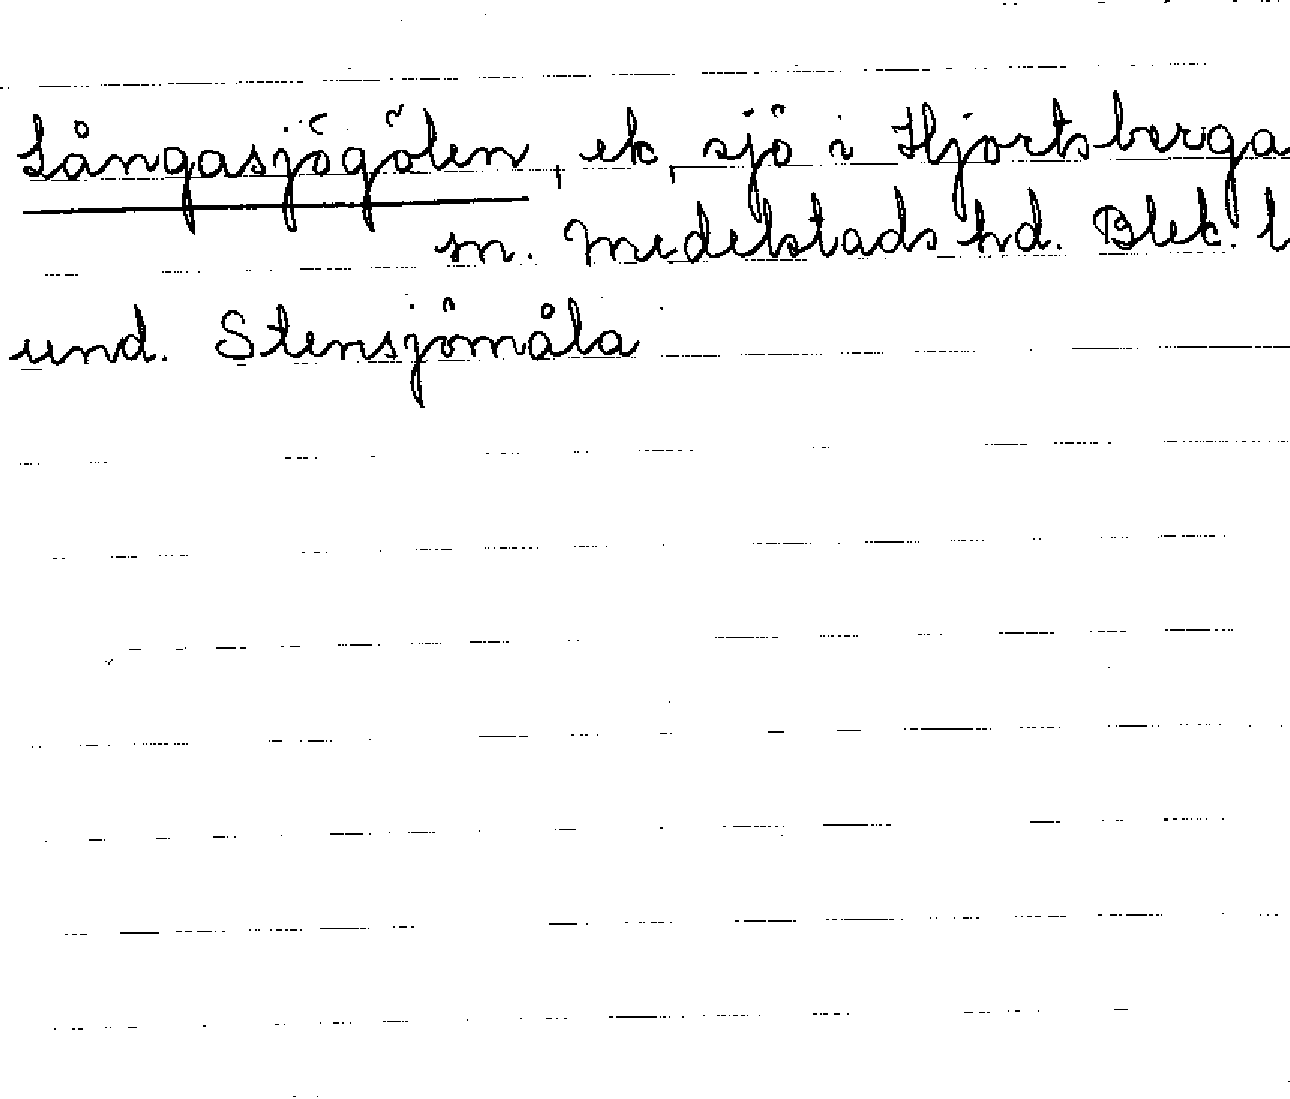 Långasjögölen, ek, sjö i Hjortsberga
sn. Medelstads hd. Blek. l
und. Stensjömåla